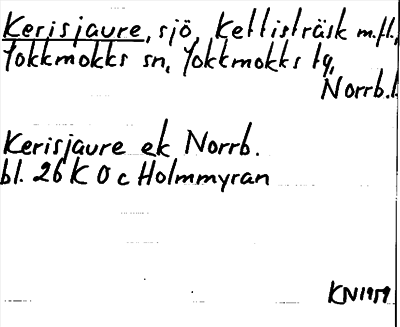 Kerisjaure, sjö, Kettisträsk m.fl.,
Jokkmokks sn, Jokkmokks tg,
Norrb.l
Kerisjaure ek Norrb.
bl. 26 K 0 c Holmmyran
KN 1959